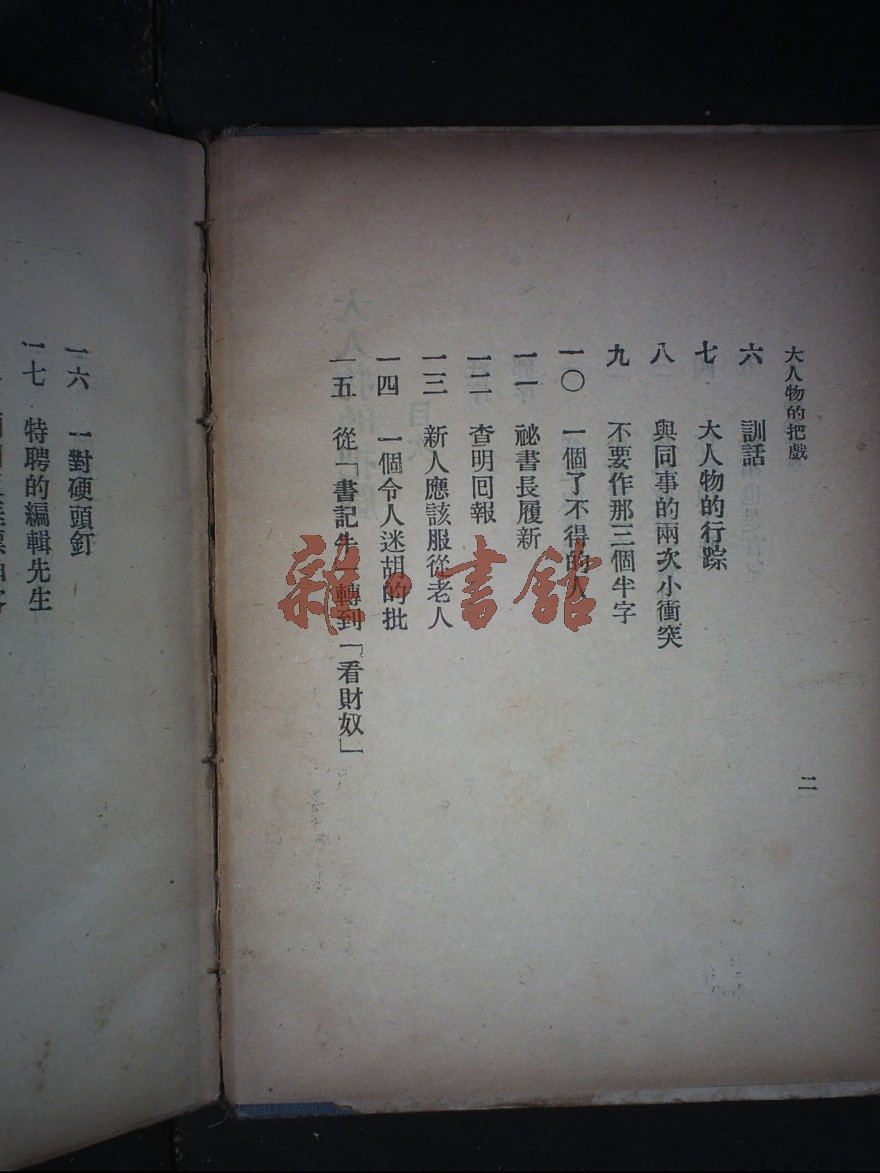 大人物的把戲
二
六 訓話
七 大人物的行踪
八 與同事的兩次小衝突
九 不要作那三個半字
一〇 一個了不得的人
一一 祕書長履新
一二 查明囘報
一三 新人應該服從老人
一四 一個令人迷胡的批
一五 從「書記牛」轉到「看財奴」
一六 一對硬頭釘
一七 特聘的編輯先生
雜·書館